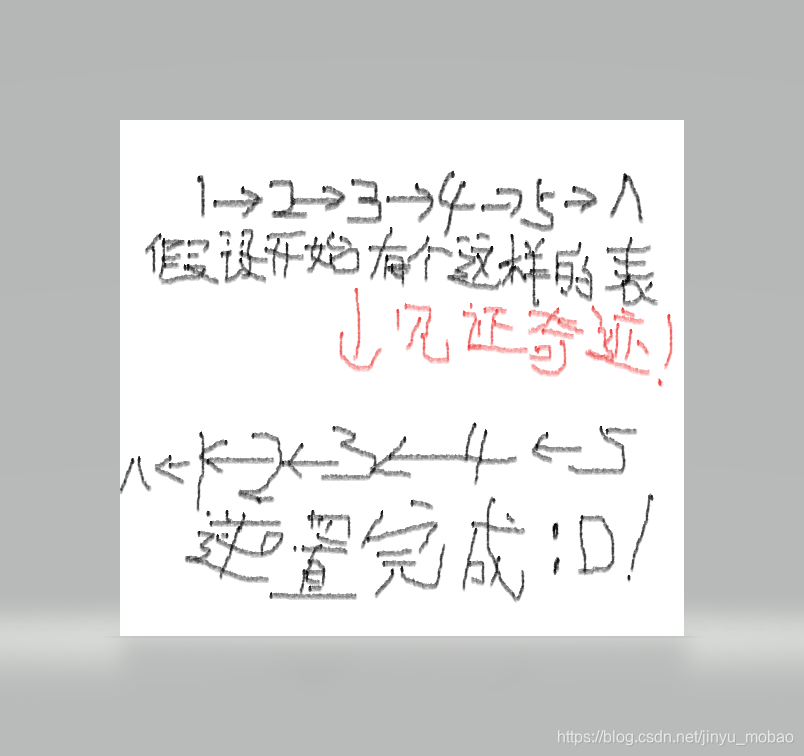 1→2→3→4→5→∧
假设开始有个这样的表
↓见证奇迹!
∧←1←2←3←4←5
逆置完成:D!
https://blog.csdn.net/jinyu_mobao